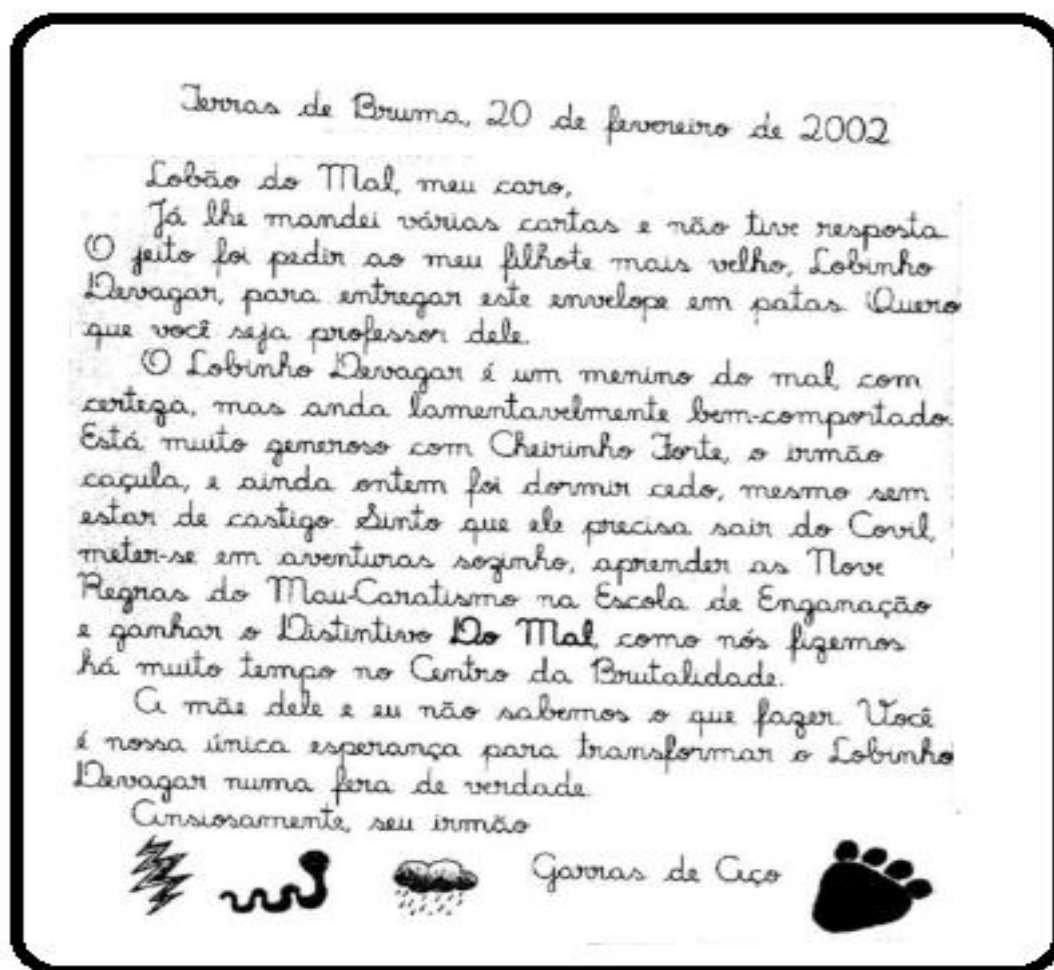 Terras de Bruma, 20 de fevereiro de 2002
Lobão do Mal, meu caro,
Já lhe mandei várias cartas e não tive resposta.
O jeito foi pedir ao meu filhote mais velho, Lobinho
Devagar, para entregar este envelope em patas. Quero
que você seja professor dele.
O Lobinho Devagar é um menino do mal, com
certeza, mas anda lamentavelmente bem-comportado.
Está muito generoso com Cheirinho Forte, o irmão
caçula, e ainda ontem foi dormir cedo, mesmo sem
estar de castigo. Sinto que ele precisa sair do Covil,
meter-se em aventuras sozinho, aprender as Nove
Regras do Mau-Caratismo na Escola de Enganação
e ganhar o Distintivo Do Mal, como nós fizemos
há muito tempo no Centro da Brutalidade.
A mãe dele e eu não sabemos o que fazer. Você
é nossa única esperança para transformar o Lobinho
Devagar numa fera de verdade.
Ansiosamente, seu irmão
Garras de Aço